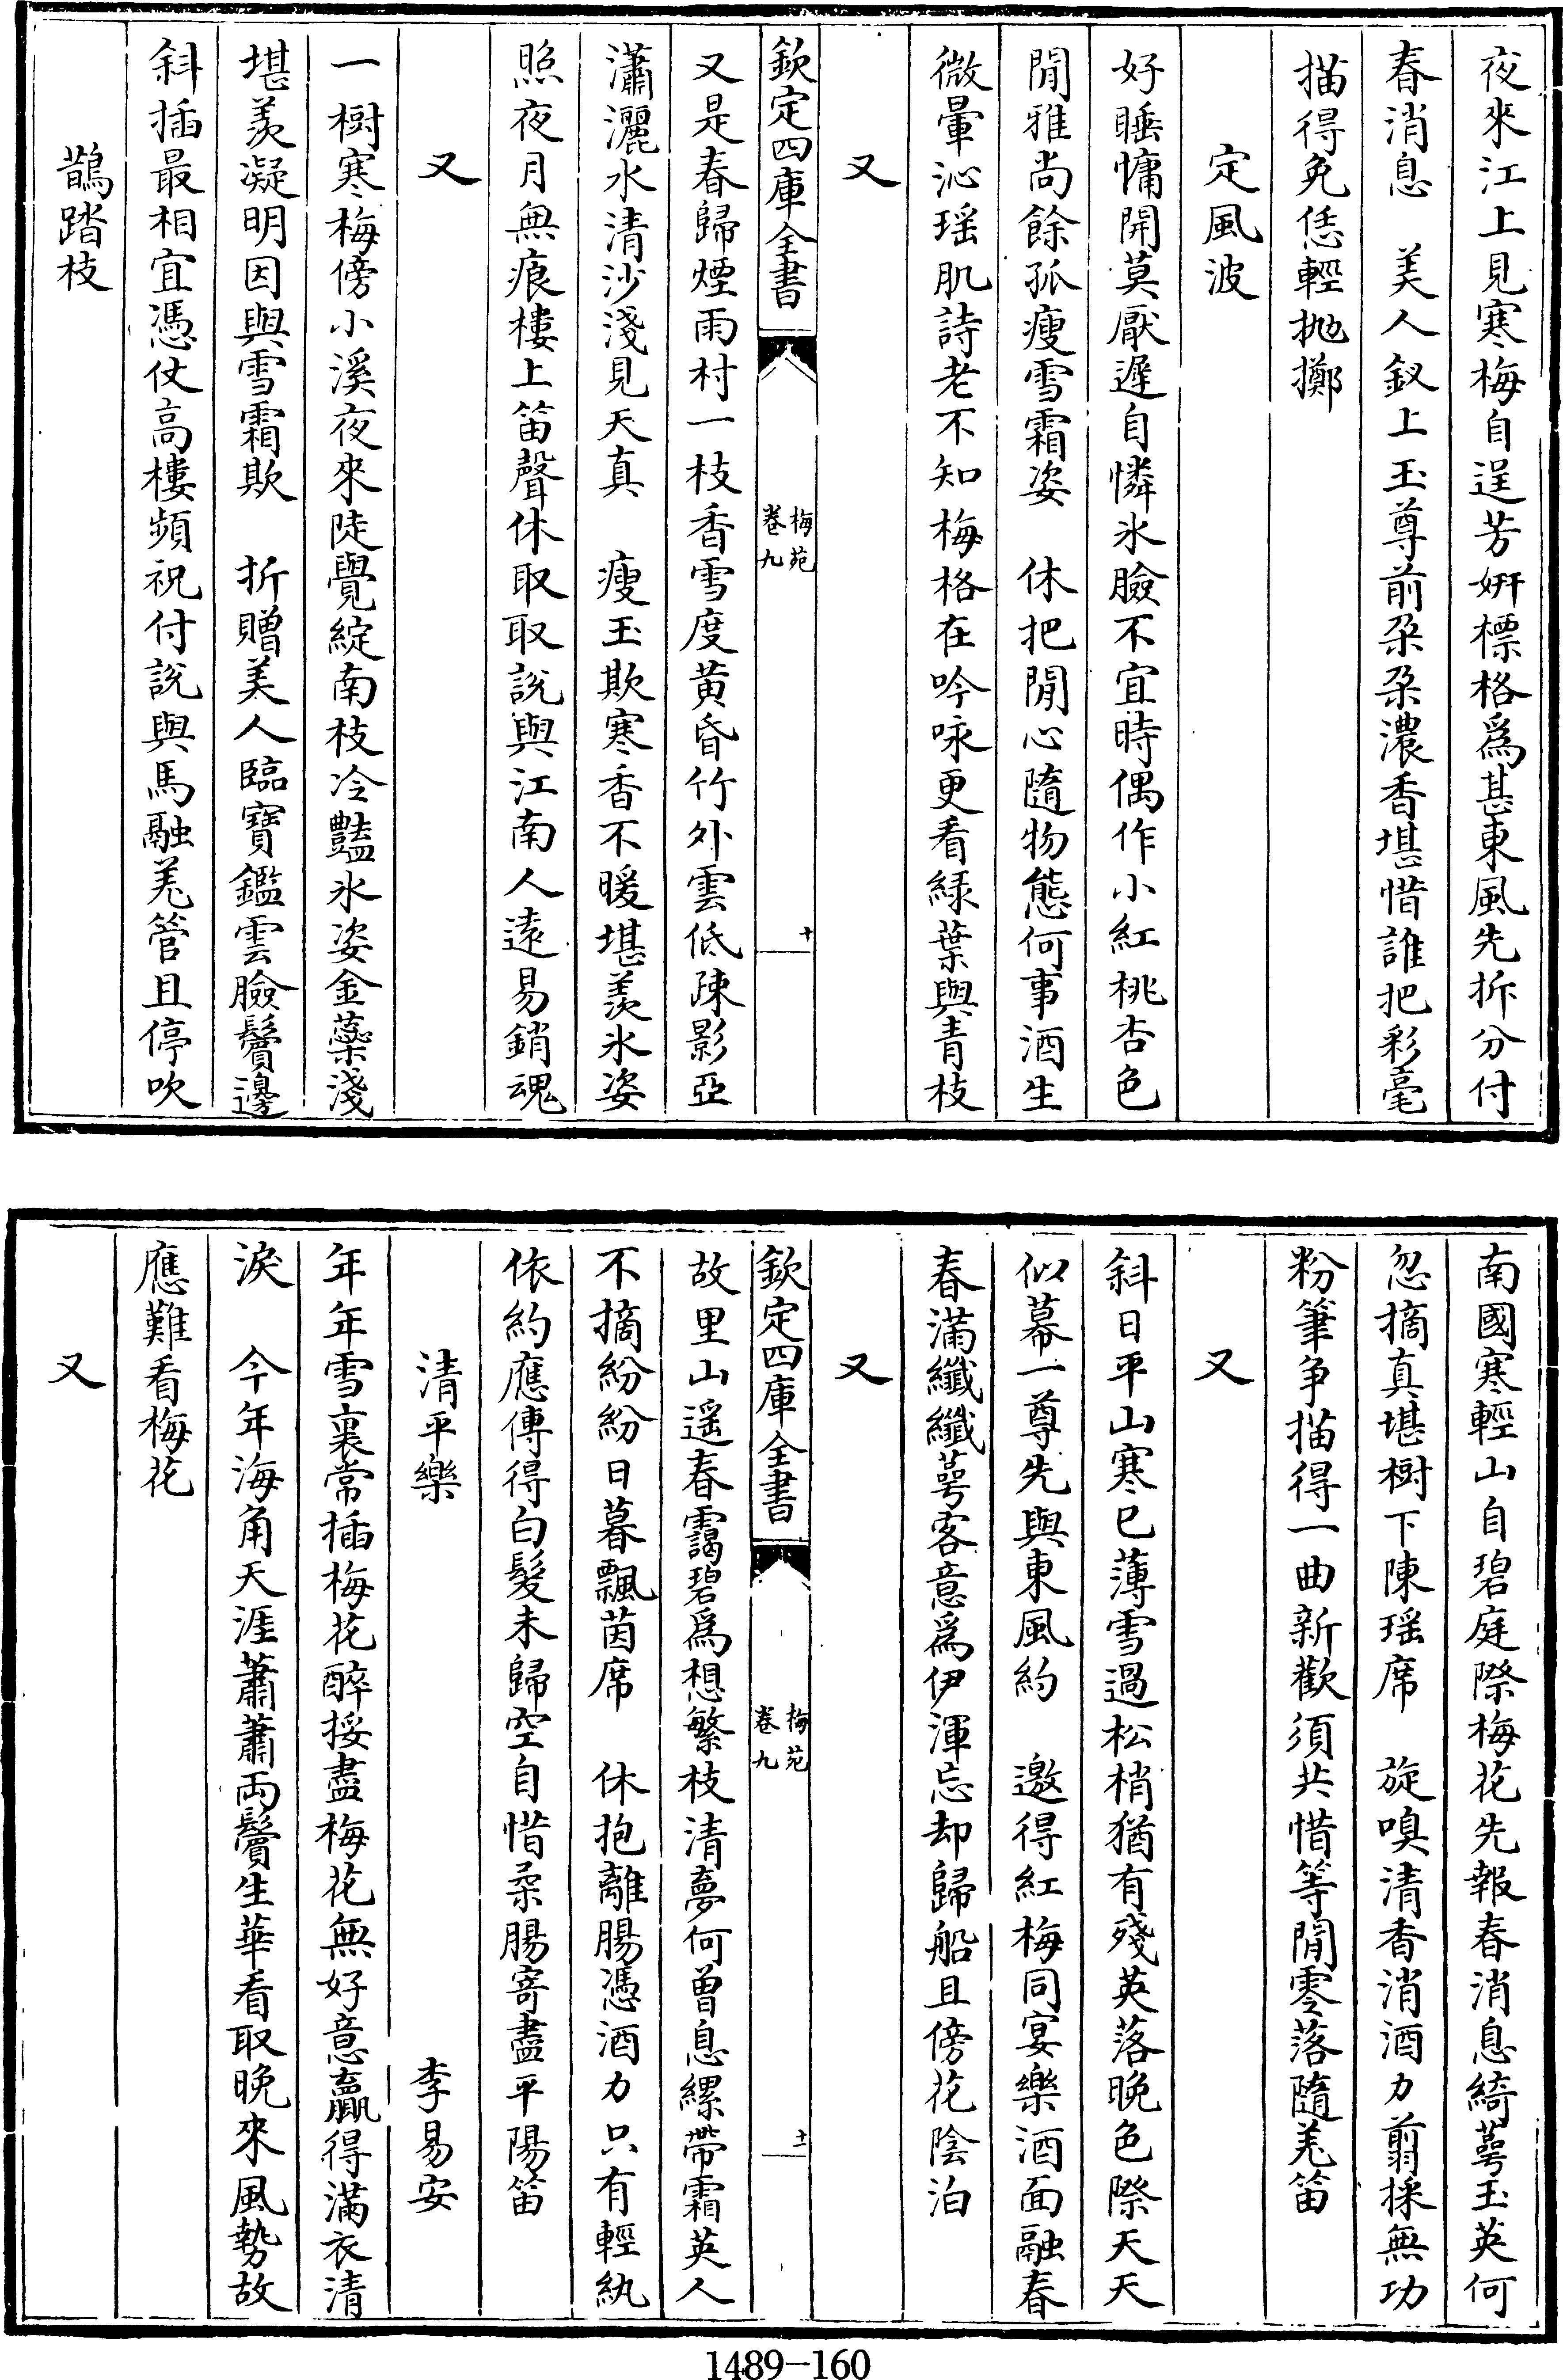 夜來江上見寒梅自逞芳姸標格爲甚東風先拆分付
春消息　美人釵上玉尊前朶朶濃香堪惜誰把彩毫
描得免恁輕抛擲
定風波
好睡慵開莫厭遲自憐氷臉不宜時偶作小紅桃杏色
閒雅尚餘孤瘦雪霜姿　休把閒心隨物態何事酒生
微暈沁瑶肌詩老不知梅格在吟咏更看緑葉與青枝
又
欽定四庫全書
梅苑
卷九
十
又是春歸煙雨村一枝香雪度黄昏竹外雲低疎影亞
瀟灑水清沙淺見天真　瘦玉欺寒香不暖堪羡氷姿
照夜月無痕樓上笛聲休取取説與江南人遠易銷魂
又
一樹寒梅傍小溪夜來陡覺綻南枝冷豔氷姿金蘂淺
堪羡凝明因與雪霜欺　折贈美人臨寳鑑雲臉鬢邊
斜插最相宜憑仗高樓頻祝付説與馬融羌管且停吹
鵲踏枝
南國寒輕山自碧庭際梅花先報春消息綺萼玉英何
忽摘真堪樹下陳瑶席　旋嗅清香消酒力翦採無功
粉筆争描得一曲新歡須共惜等閒零落隨羌笛
又
斜日平山寒已薄雪過松梢猶有殘英落晚色際天天
似幕一尊先與東風約　邀得紅梅同宴樂酒面融春
春滿纖纖萼客意爲伊渾忘却歸船且傍花陰泊
又
欽定四庫全書
梅苑
卷九
十一
故里山遥春靄碧爲想繁枝清夢何曽息縲帶霜英人
不摘紛紛日暮飄茵席　休抱離腸憑酒力只有輕紈
依約應傳得白髮未歸空自惜柔腸寄盡平陽笛
清平樂　李易安
年年雪裏常插梅花醉挼盡梅花無好意贏得滿衣清
淚　今年海角天涯蕭蕭兩鬢生華看取晩來風勢故
應難看梅花
又
1489-160